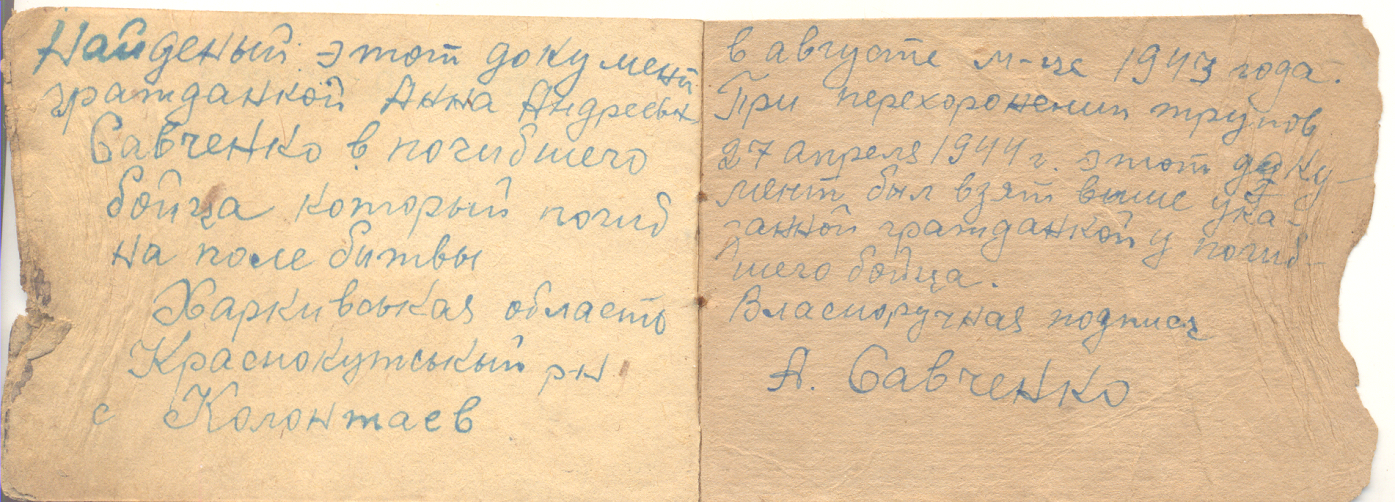 Найденый этот документ
гражданкой Анна Андреевн
Савченко в погибшего
бойца который погиб
на поле битвы
Харкивськая область
Краснокутський рн
с Колонтаев
в августе м-це 1943 года.
При перехоронении трупов
27 апреля 1944 г. этот доку-
мент был взят выше ука-
занной гражданкой у погиб-
шего бойца.
Власноручная подпись
А. Савченко